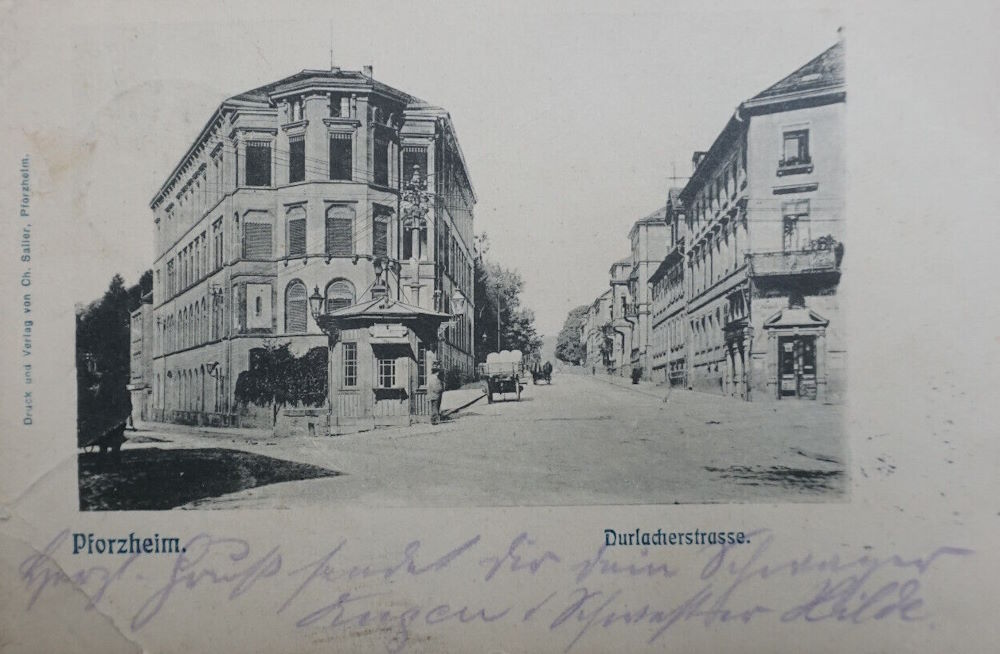 Druck und Verlag von Ch. Saller, Pforzheim.
Pforzheim.
Durlacherstrasse.
Herzl. Gruß sendet Dir dein Schwager
Schwester Hilde.